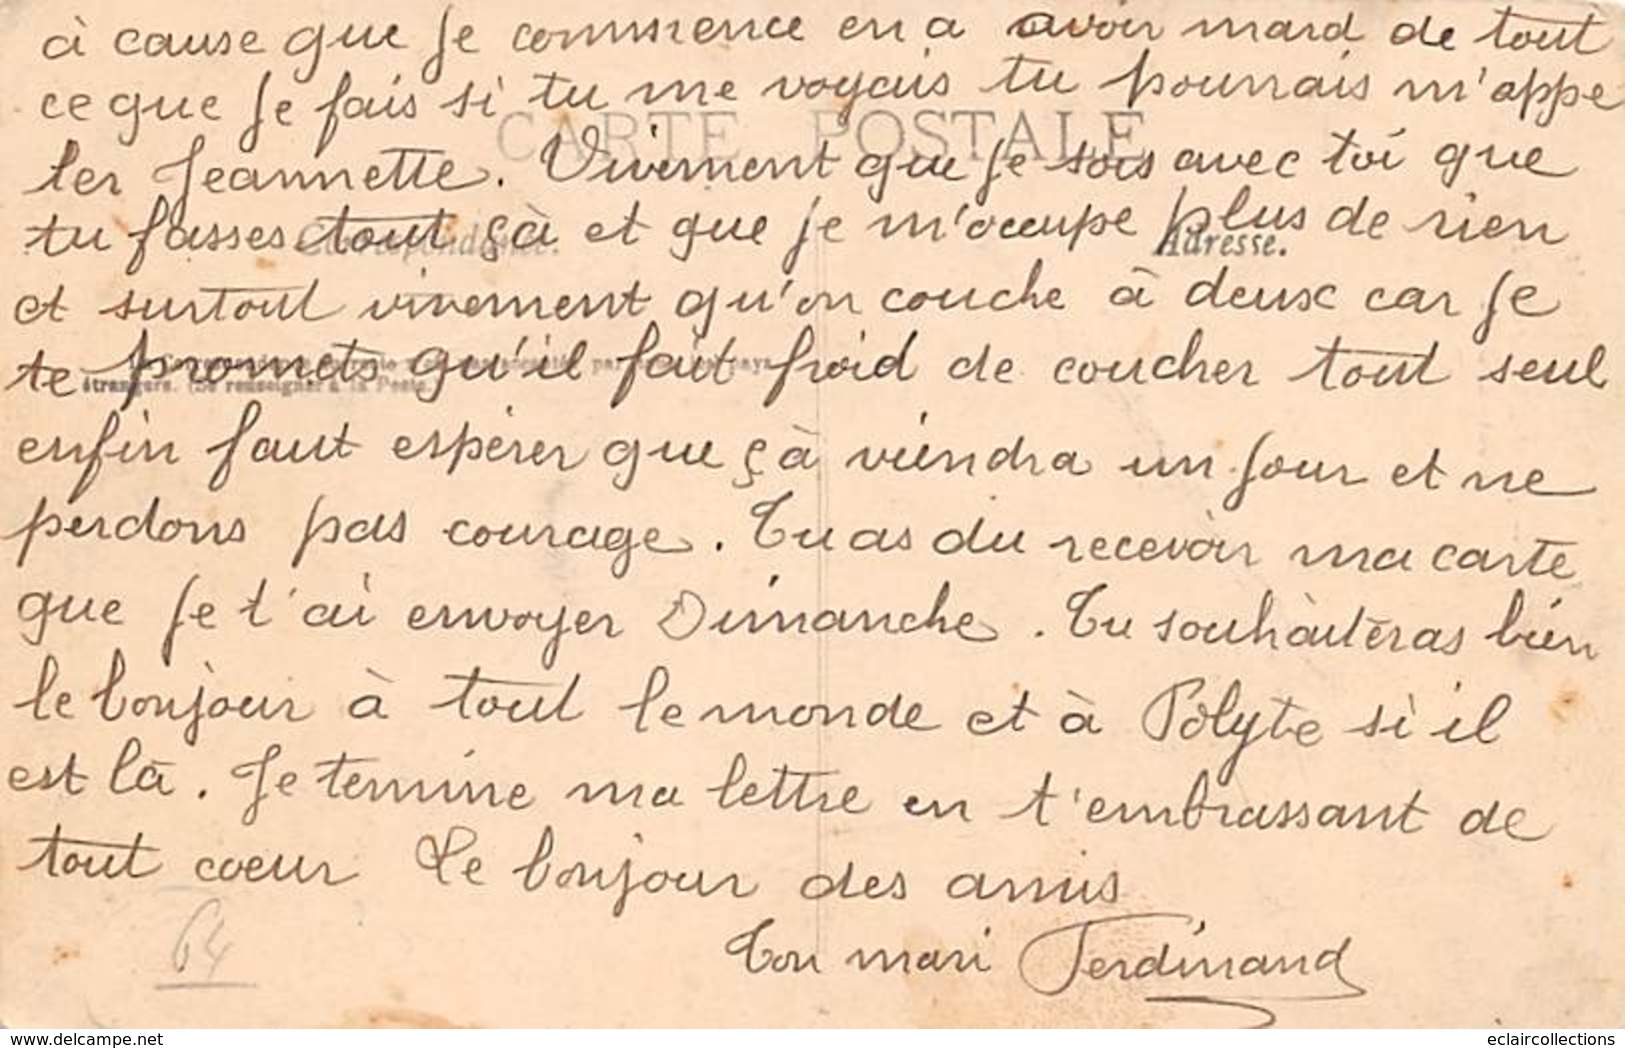 à cause que je commence en a avoir mard de tout
ce que je fais si tu me voyais tu pourrais m'appe
CARTE POSTALE
ler Jeannette. Vivement que je sois avec toi que
tu fasses tout çà et que je m'occupe plus de rien
Correspondance. Adresse.
et surtout vivement qu'on couche à deux car je
te promets qu'il fait froid de coucher tout seul
étrangers. (Se renseigner à la Poste.)
enfin faut espérer que çà viendra un jour et ne
perdons pas courage. Tu as du recevoir ma carte
que je t'ai envoyer Dimanche. Tu souhaiteras bien
le bonjour à tout le monde et à Polyte si il
est là. Je termine ma lettre en t'embrassant de
tout coeur Le bonjour des amis
Ton mari Ferdinand
64
www.delcampe.net
eclaircollections